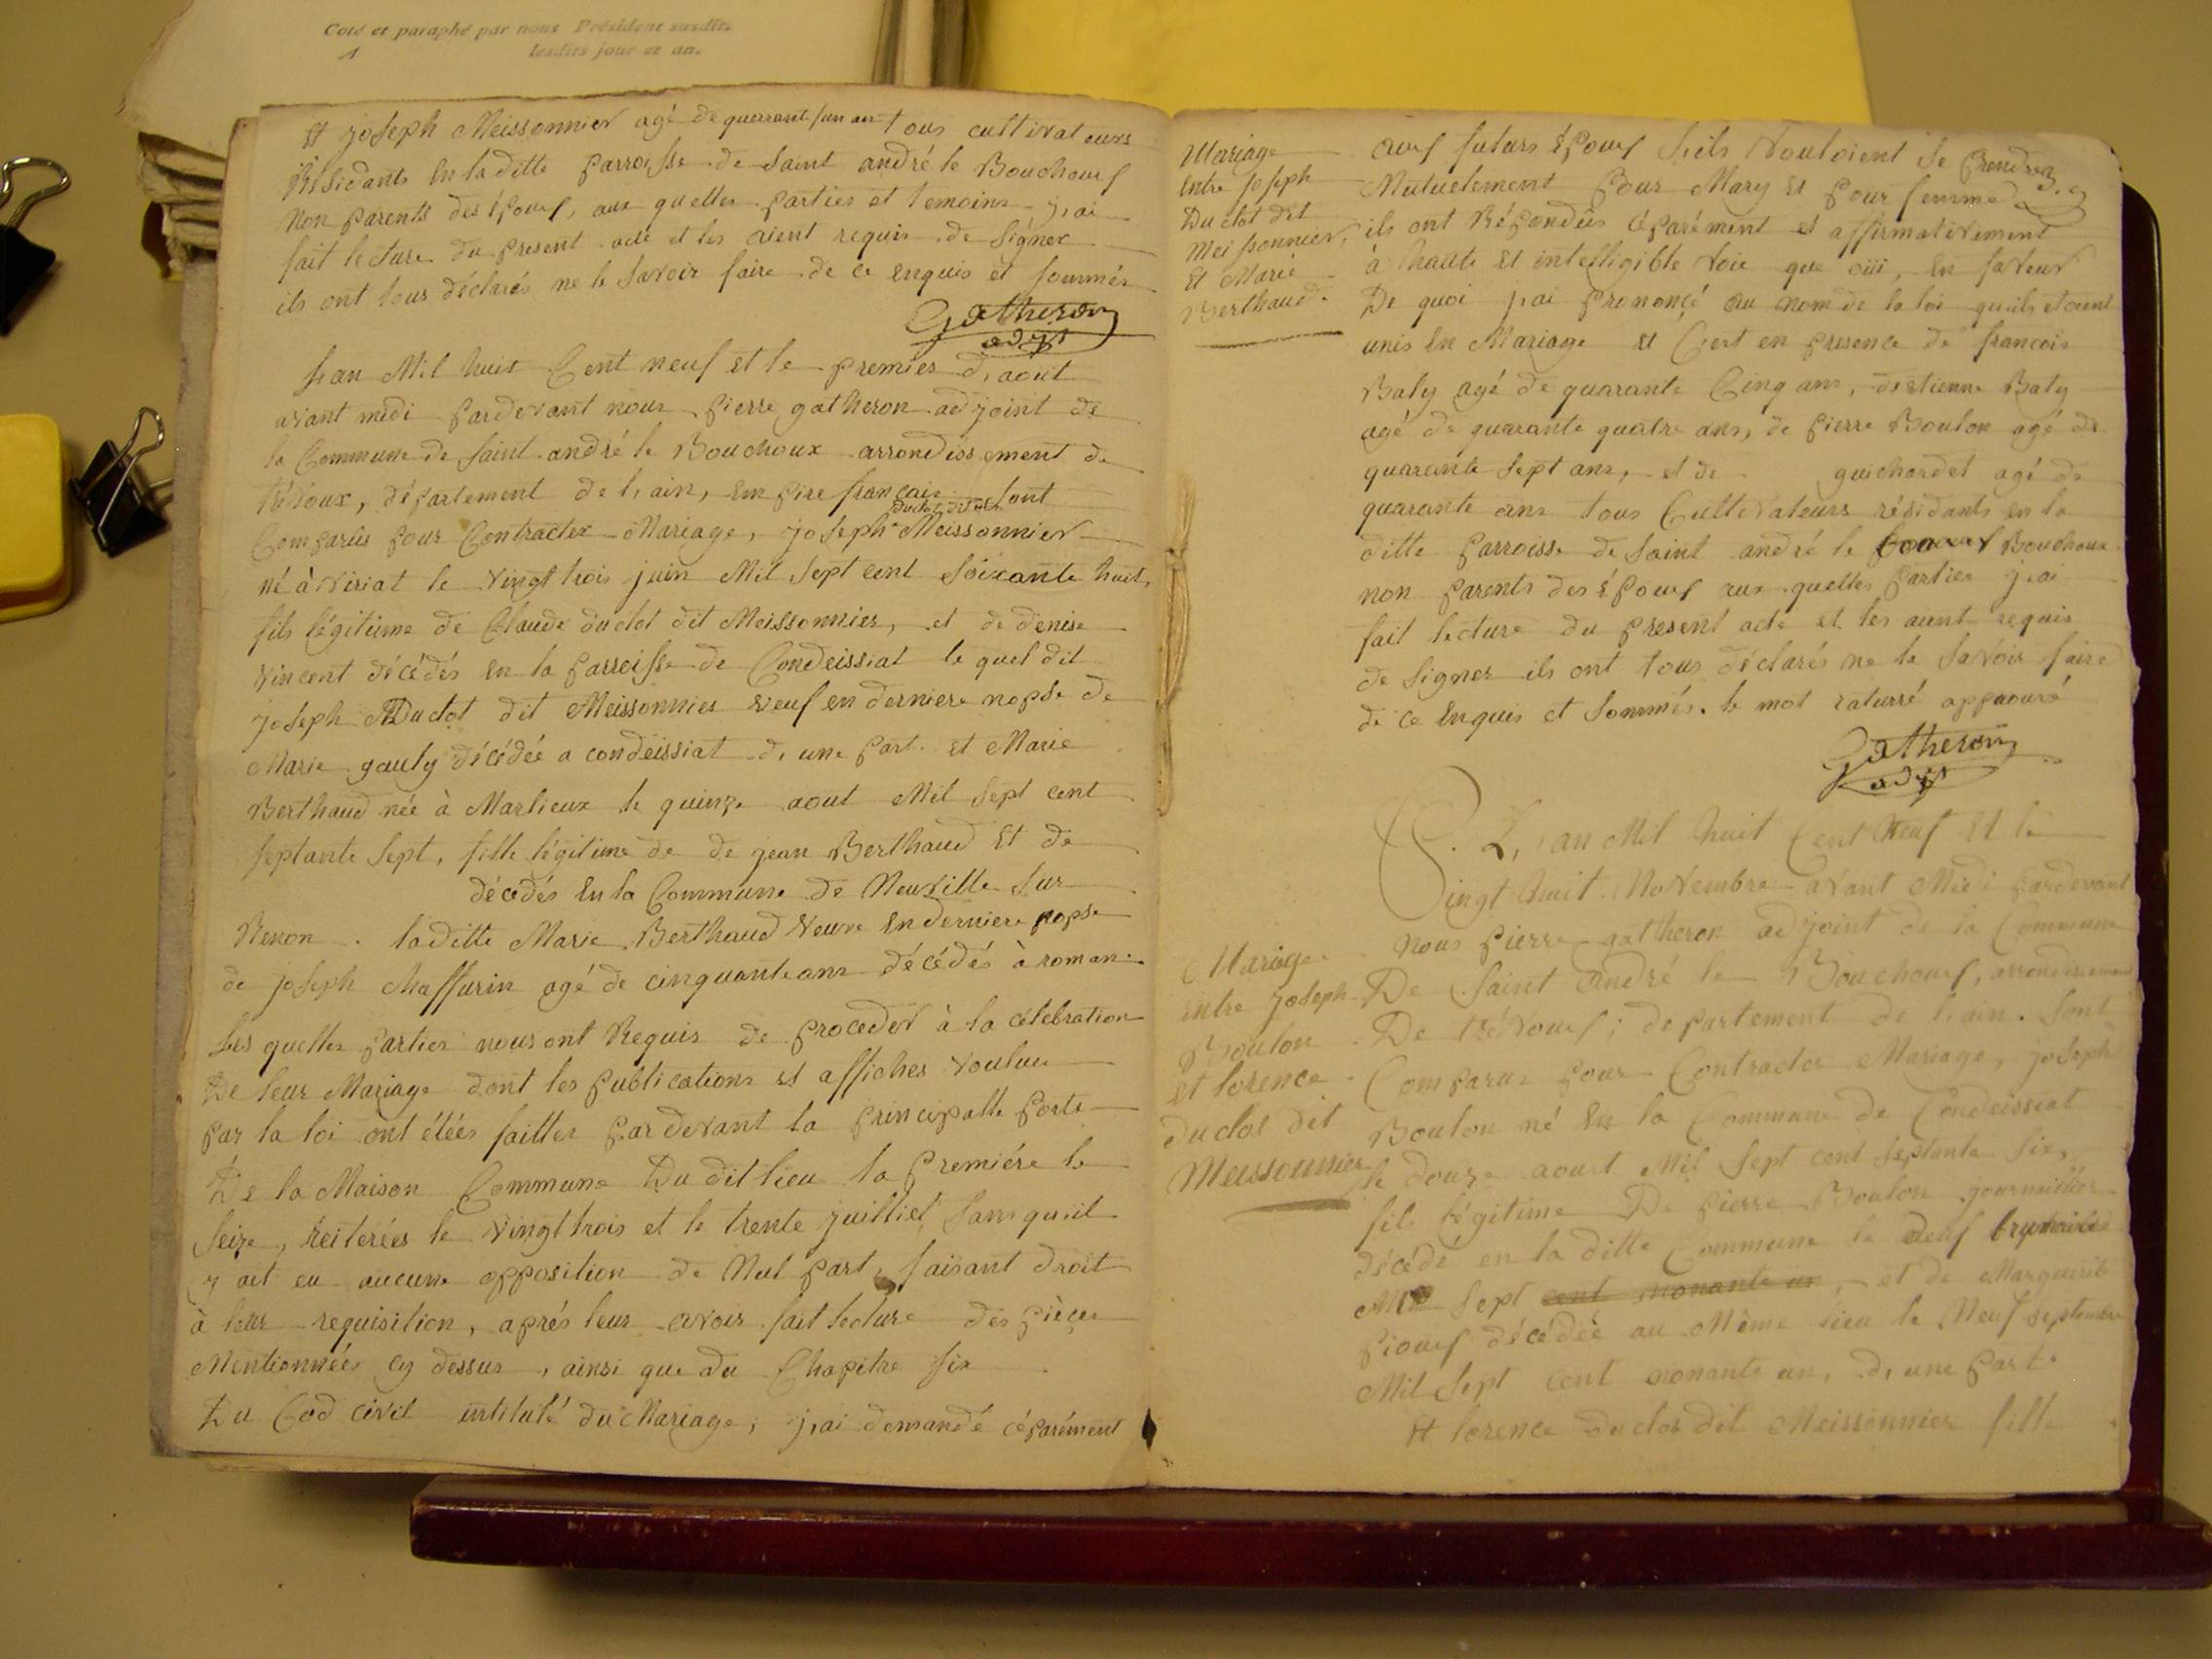 Coté et paraphé par nous Président susdit,
lesdits jour et an.
1
Et joseph Meissonnier agé de quarant / un an tous cultivateurs
Résidants En laditte parroisse de Saint andré le Bouchouf
Non parents des époux, aux quelles parties et temoins j,ai
fait lecture du present acte et les aient requis de Signer
ils ont tous déclarés ne le Savoir faire de ce enquis et sommés
Gatheron
adjt
L'an Mil huit Cent neuf et le premier d,aout
avant midi pardevant nous pierre gatheron adjoint de
la Commune de Saint andré le Bouchoux arrondissement de
trévoux, département de l,ain, Empire français sont
Comparûs pour Contracter Mariage, joseph duclot dit Meissonnier
né à viriat le vingt trois juin Mil Sept cent Soixante huit,
fils légitime de Claude duclot dit Meissonnier, et de denise
vincent décédés En la parroisse de Condeissiat le quel dit
joseph Duclot dit Meissonnier veuf en derniere nopse de
Marie gauty décédée a condeissiat d, une part et Marie
Berthaud née à Marlieux le quinze aout Mil Sept cent
septante Sept, fille légitime de de jean Berthaud Et de
décédés En la Commune de Neuville Sur
Renon . laditte Marie Berthaud veuve En derniere nopse
de joseph Maffurin agé de cinquante ans décédés à roman.
Les quelles parties nous ont Requis de proceder à la célebration
De leur Mariage dont les publications et affiches voulue
par la loi ont étées faittes par devant la principalle porte
De la Maison Commune Du dit lieu la première le
Seize, reiterées le vingt trois et le trente juilliet, Sans qu,il
y ait eu aucune opposition de Nul part, faisant droit
à leur requisition, aprés leur avoir fait lecture des pièces
Mentionnées cy dessus, ainsi que du Chapitre six
Du Cod civil intitulé du Mariage, j,ai demandé céparément
Mariage
Entre joseph
Duclot dit
Meissonnier,
Et Marie
Berthaud.
3.
auf futurs Epouf S,ils vouloient se prendre
Mutuelement pour Mary et pour femme
ils ont Répondûs céparément et affirmativement
à haute et intelligible voie que oüi, En faveur
De quoi j,ai prononçé au nom de la loi qu,ils etoient
unis En Mariage et C,est en presence de francois
Baty agé de quarante Cinq ans, d,etienne Baty
agé de quarante quatre ans, de pierre Boulon agé de
quarante Sept ans, et de guichardet agé de
quarante ans tous Cultevateurs résidants en la
ditte parroisse de Saint andré le Bouchoux
non parents des époux aux quelles parties j,ai
fait lecture du present acte et les aient requis
de Signer ils ont tous déclarés ne le Savoir faire
de ce Enquis et Sommés. le mot raturré approuvé
Gatheron
adjt
L, an Mil huit Cent Neuf Et le
Vingt huit Novembre avant Midi pardevant
Nous pierre gatheron adjoint de la Commune
De Saint André le Bouchouf, arrondissement
De trévouf; departement de l,ain. Sont
Comparus pour Contracter Mariage, joseph
Boulon né En la Commune de Condeissiat
le douze aoust Mil Sept cent Septante Six,
fils légitime De pierre Boulon journaillier
décédé en la ditte Commune le neuf brumaire
Mil Sept cent nonante un, et de Marguerite
piouf décédée au Même lieu le Neuf septembre
Mil Sept cent nonante un, d, une part.
Et lorence duclos dit Meissonnier fille
Mariage
entre joseph
Boulon
et lorence
duclos dit
Meissonnier